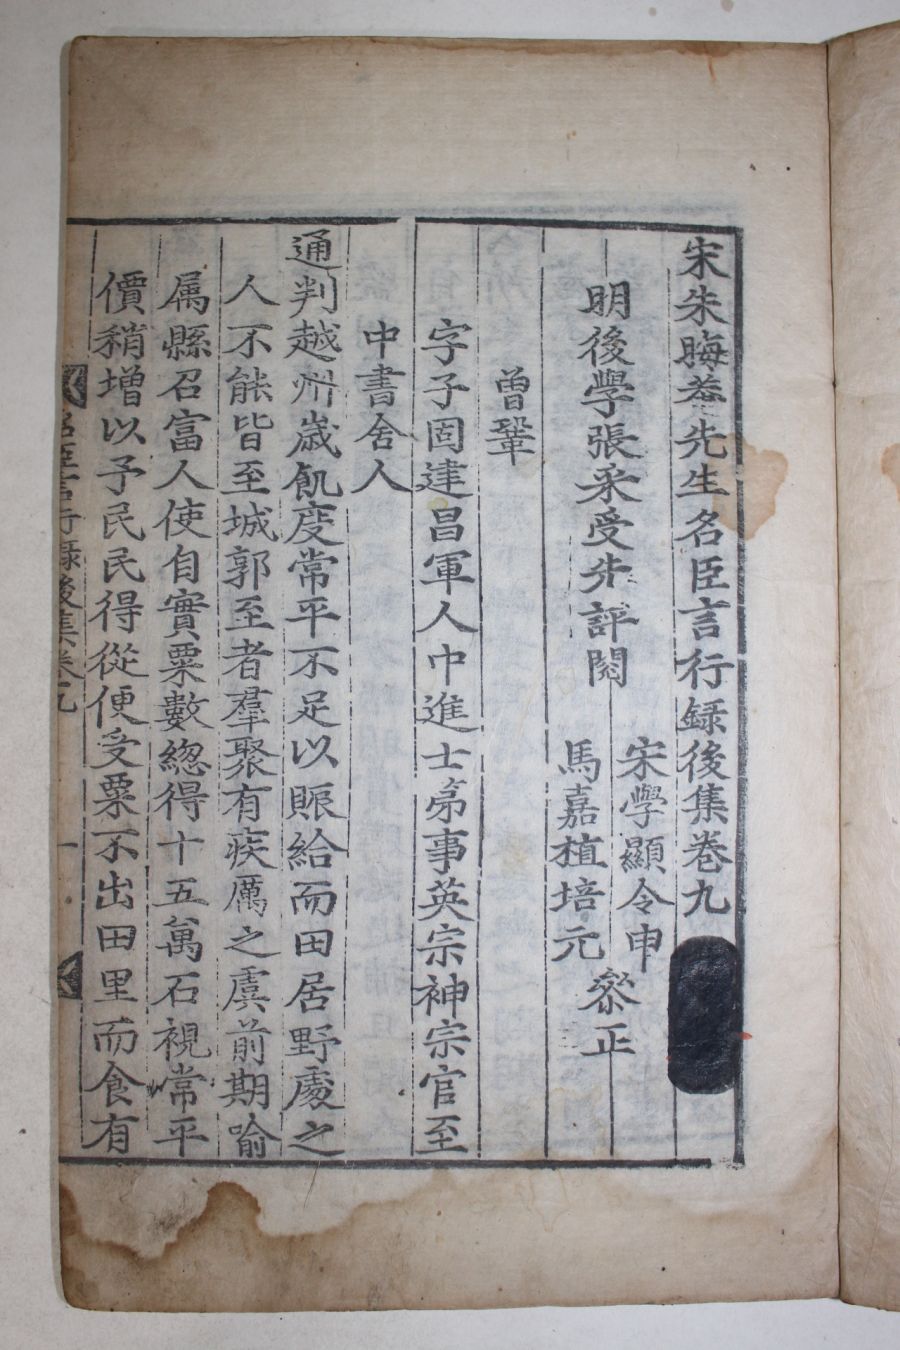 宋朱晦菴先生名臣言行録後集卷九
明後學張采受先評閱
宋學顯令申
馬嘉植培元
叅正
曾鞏
字子固建昌軍人中進士第事英宗神宗官至
中書舍人
通判越州歲飢度常平不足以賑給而田居野處之
人不能皆至城郭至者羣聚有疾厲之虞前期喻
屬縣召富人使自實粟數緫得十五萬石視常平
價稍增以予民民得從便受粟不出田里而食有
名臣言行錄後集卷九
一